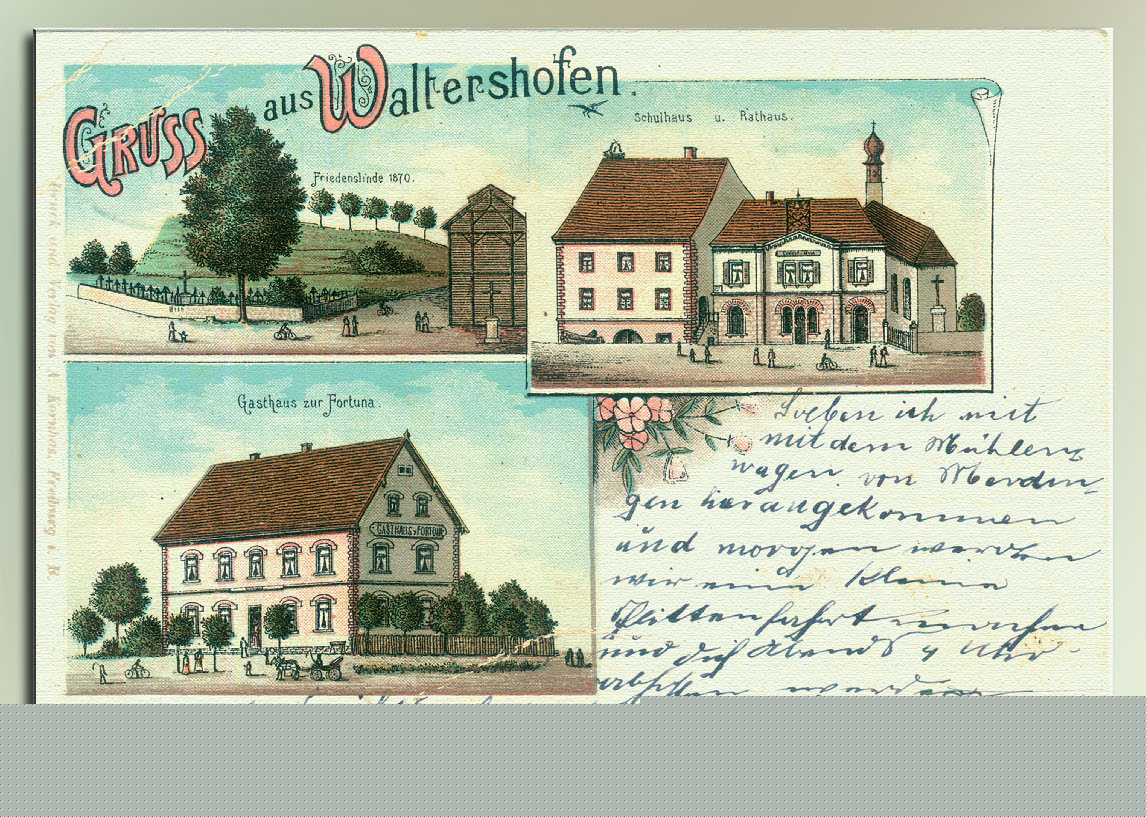 GRUSS aus Waltershofen.
Friedenslinde 1870.
Schulhaus u. Rathaus.
Gasthaus zur Fortuna.
GASTHAUS z. FORTUNA
Druck und Verlag von
Freiburg i. B.
Soeben ich mit
mit dem Mühlen
wagen von Merdin-
gen herangekommen
und morgen werden
wir eine kleine
Schlittenfahrt machen
und dich Abends 4 Uhr
abholen werden